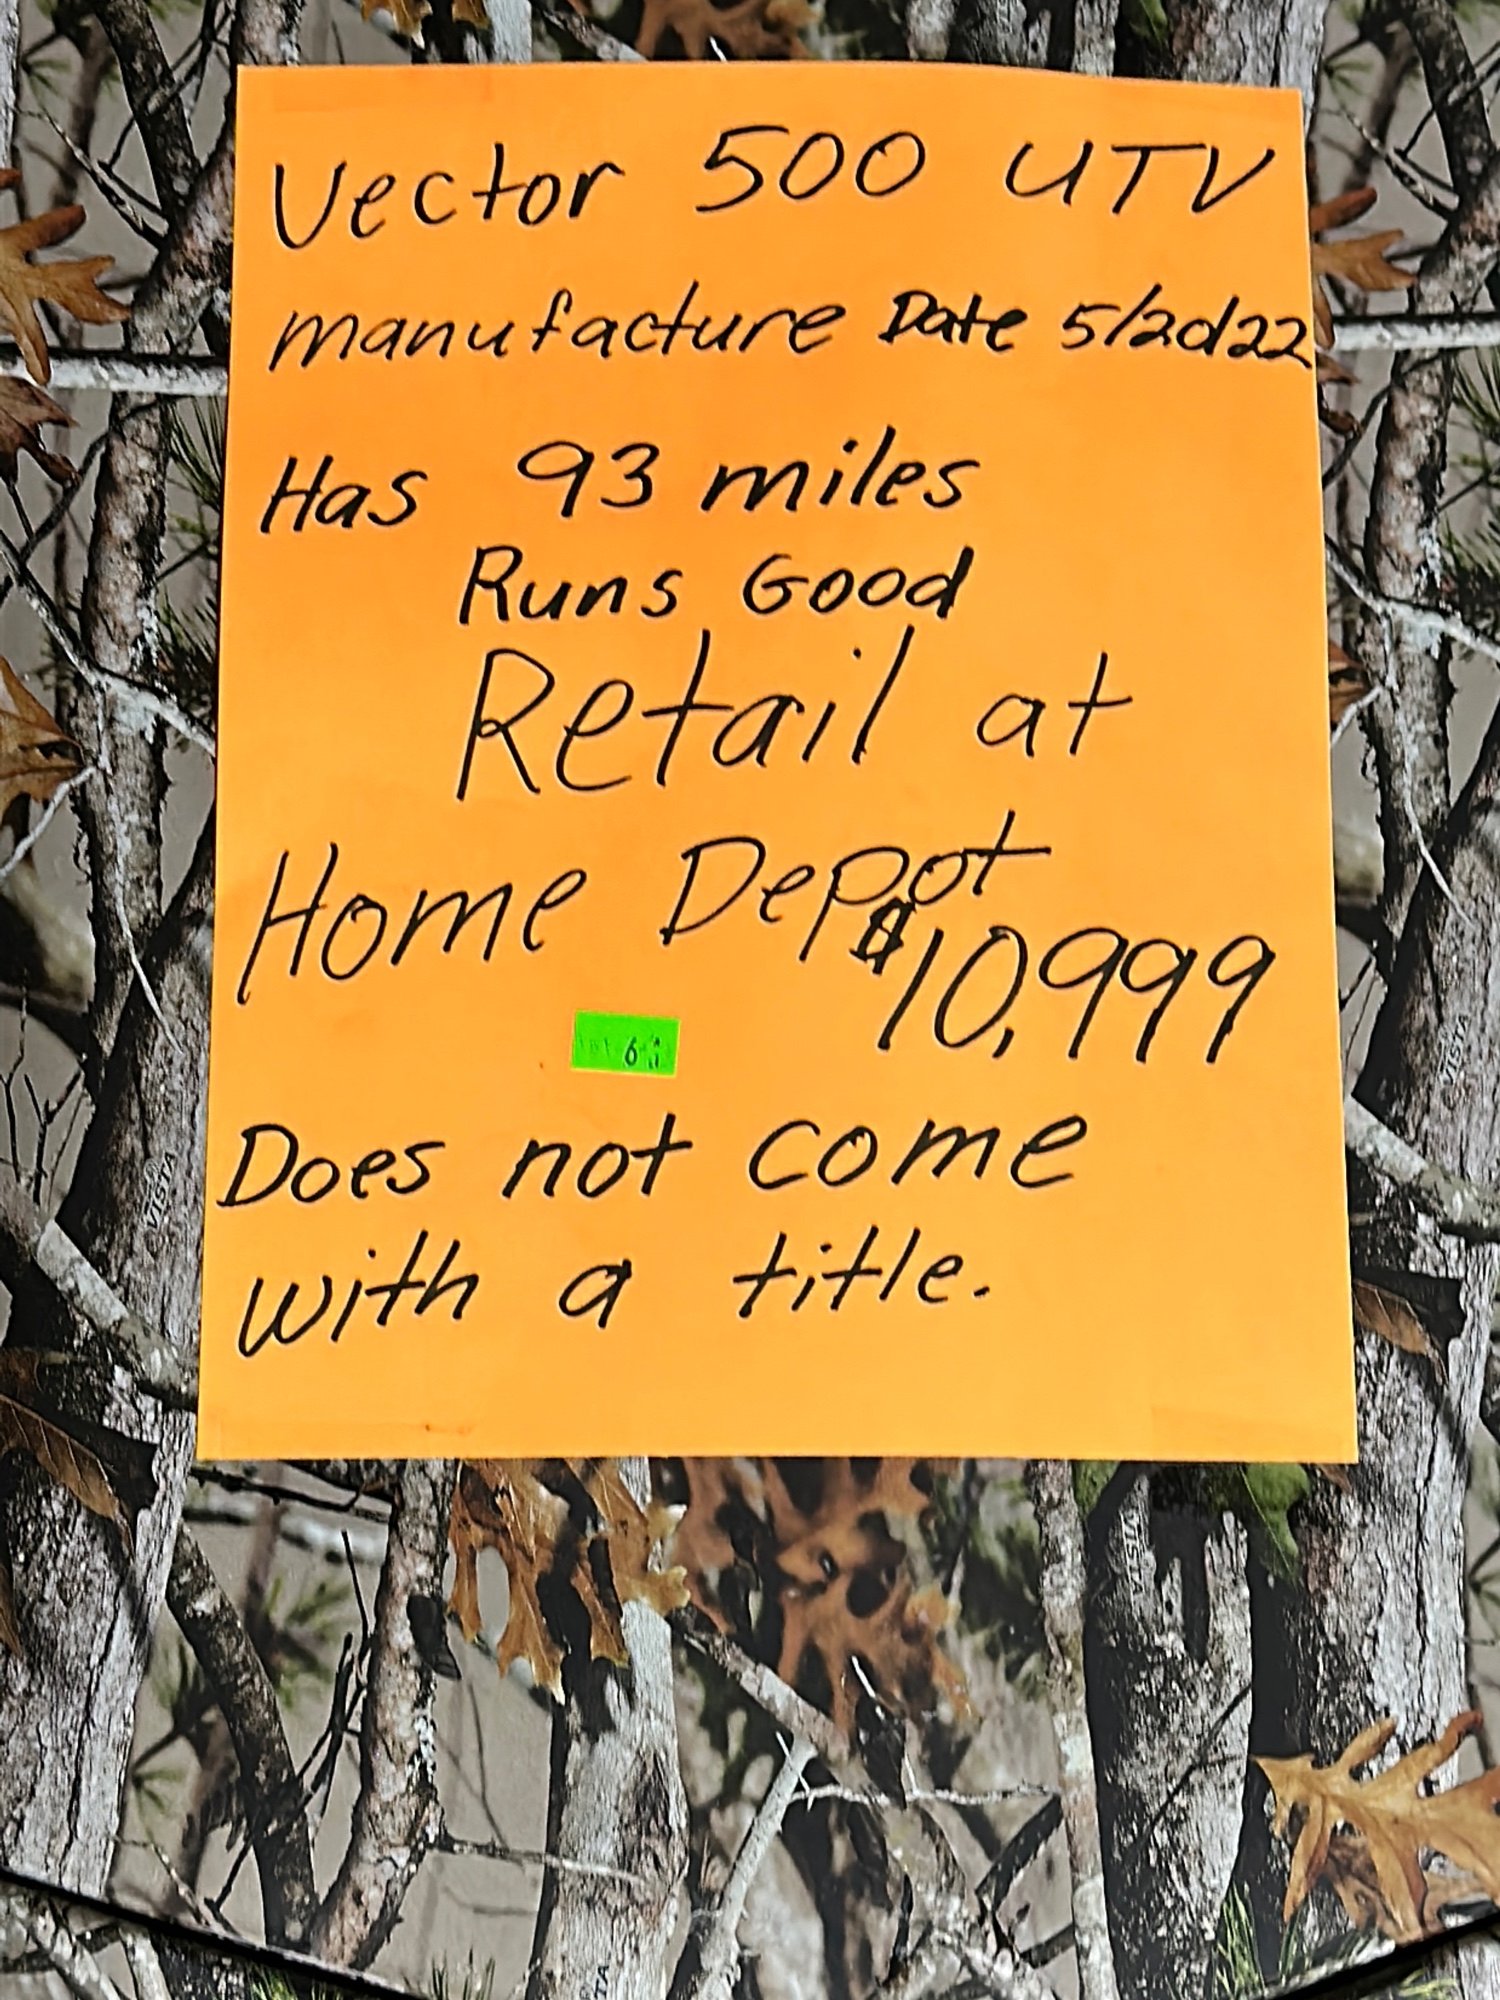 Vector 500 UTV
manufacture Date 5/20/22
Has 93 miles
Runs Good
Retail at
Home Depot
$10,999
Does not come
with a title.
VISTA
VISTA
VISTA